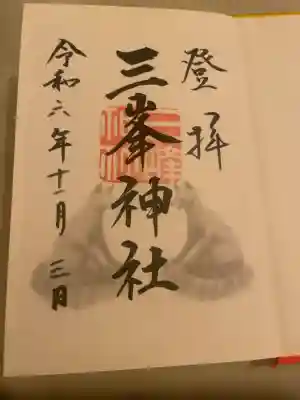 登拝
三峯神社
令和六年十一月三日